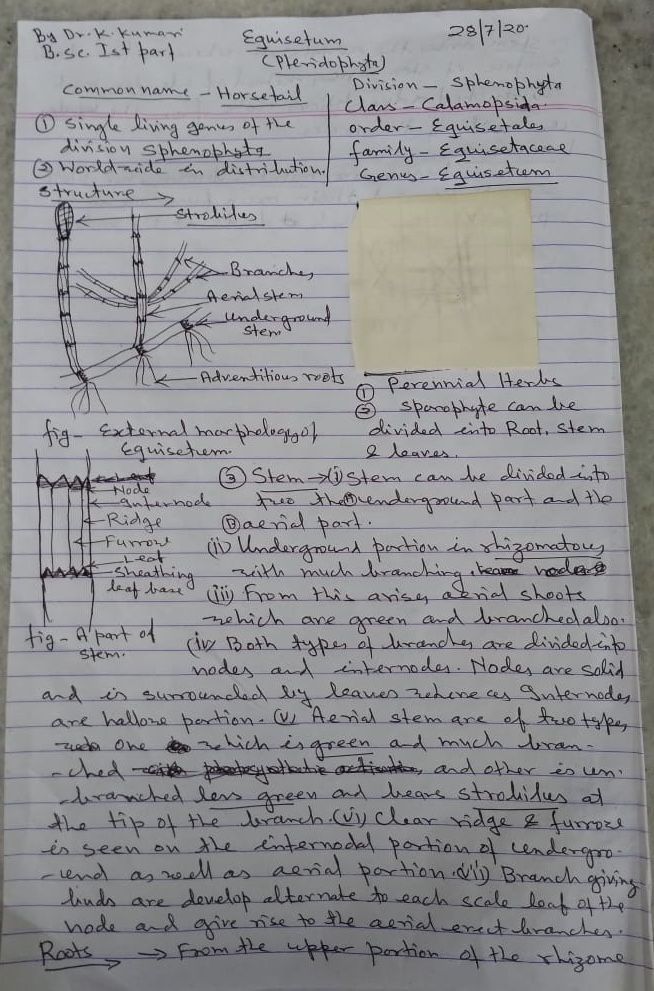 By Dr. K. Kumari
B.Sc. Ist part
Equisetum
(Pteridophyta)
28/7/20
Common name - Horsetail
① Single living genus of the
division Sphenophyta
② Worldwide in distribution.
Division - Sphenophyta
Class - Calamopsida.
order - Equisetales
family - Equisetaceae
Genus - Equisetum
Structure →
Strobilus
Branches
Aerial stem
underground
stem
Adventitious roots
fig - External morphology of
Equisetum.
① Perennial Herbs
② Sporophyte can be
divided into Root, Stem
& leaves.
Node
Internode
Ridge
Furrow
Leaf
Sheathing
leaf base
fig - A part of
stem.
③ Stem → (i) Stem can be divided into
two the Ⓐ underground part and the
Ⓑ aerial part.
(ii) Underground portion in rhizomatous
with much branching.
(iii) From this arises aerial shoots
which are green and branched also.
(iv) Both types of branches are divided into
nodes and internodes. Nodes are solid
and is surrounded by leaves where as Internodes
are hallow portion. (v) Aerial stem are of two types,
one which is green and much bran-
-ched and other is un-
-branched less green and bears strobilus at
the tip of the branch. (vi) Clear ridge & furrow
is seen on the internodal portion of undergro-
-und as well as aerial portion. (vii) Branch giving
buds are develop alternate to each scale leaf of the
node and give rise to the aerial erect branches.
Roots → From the upper portion of the rhizome